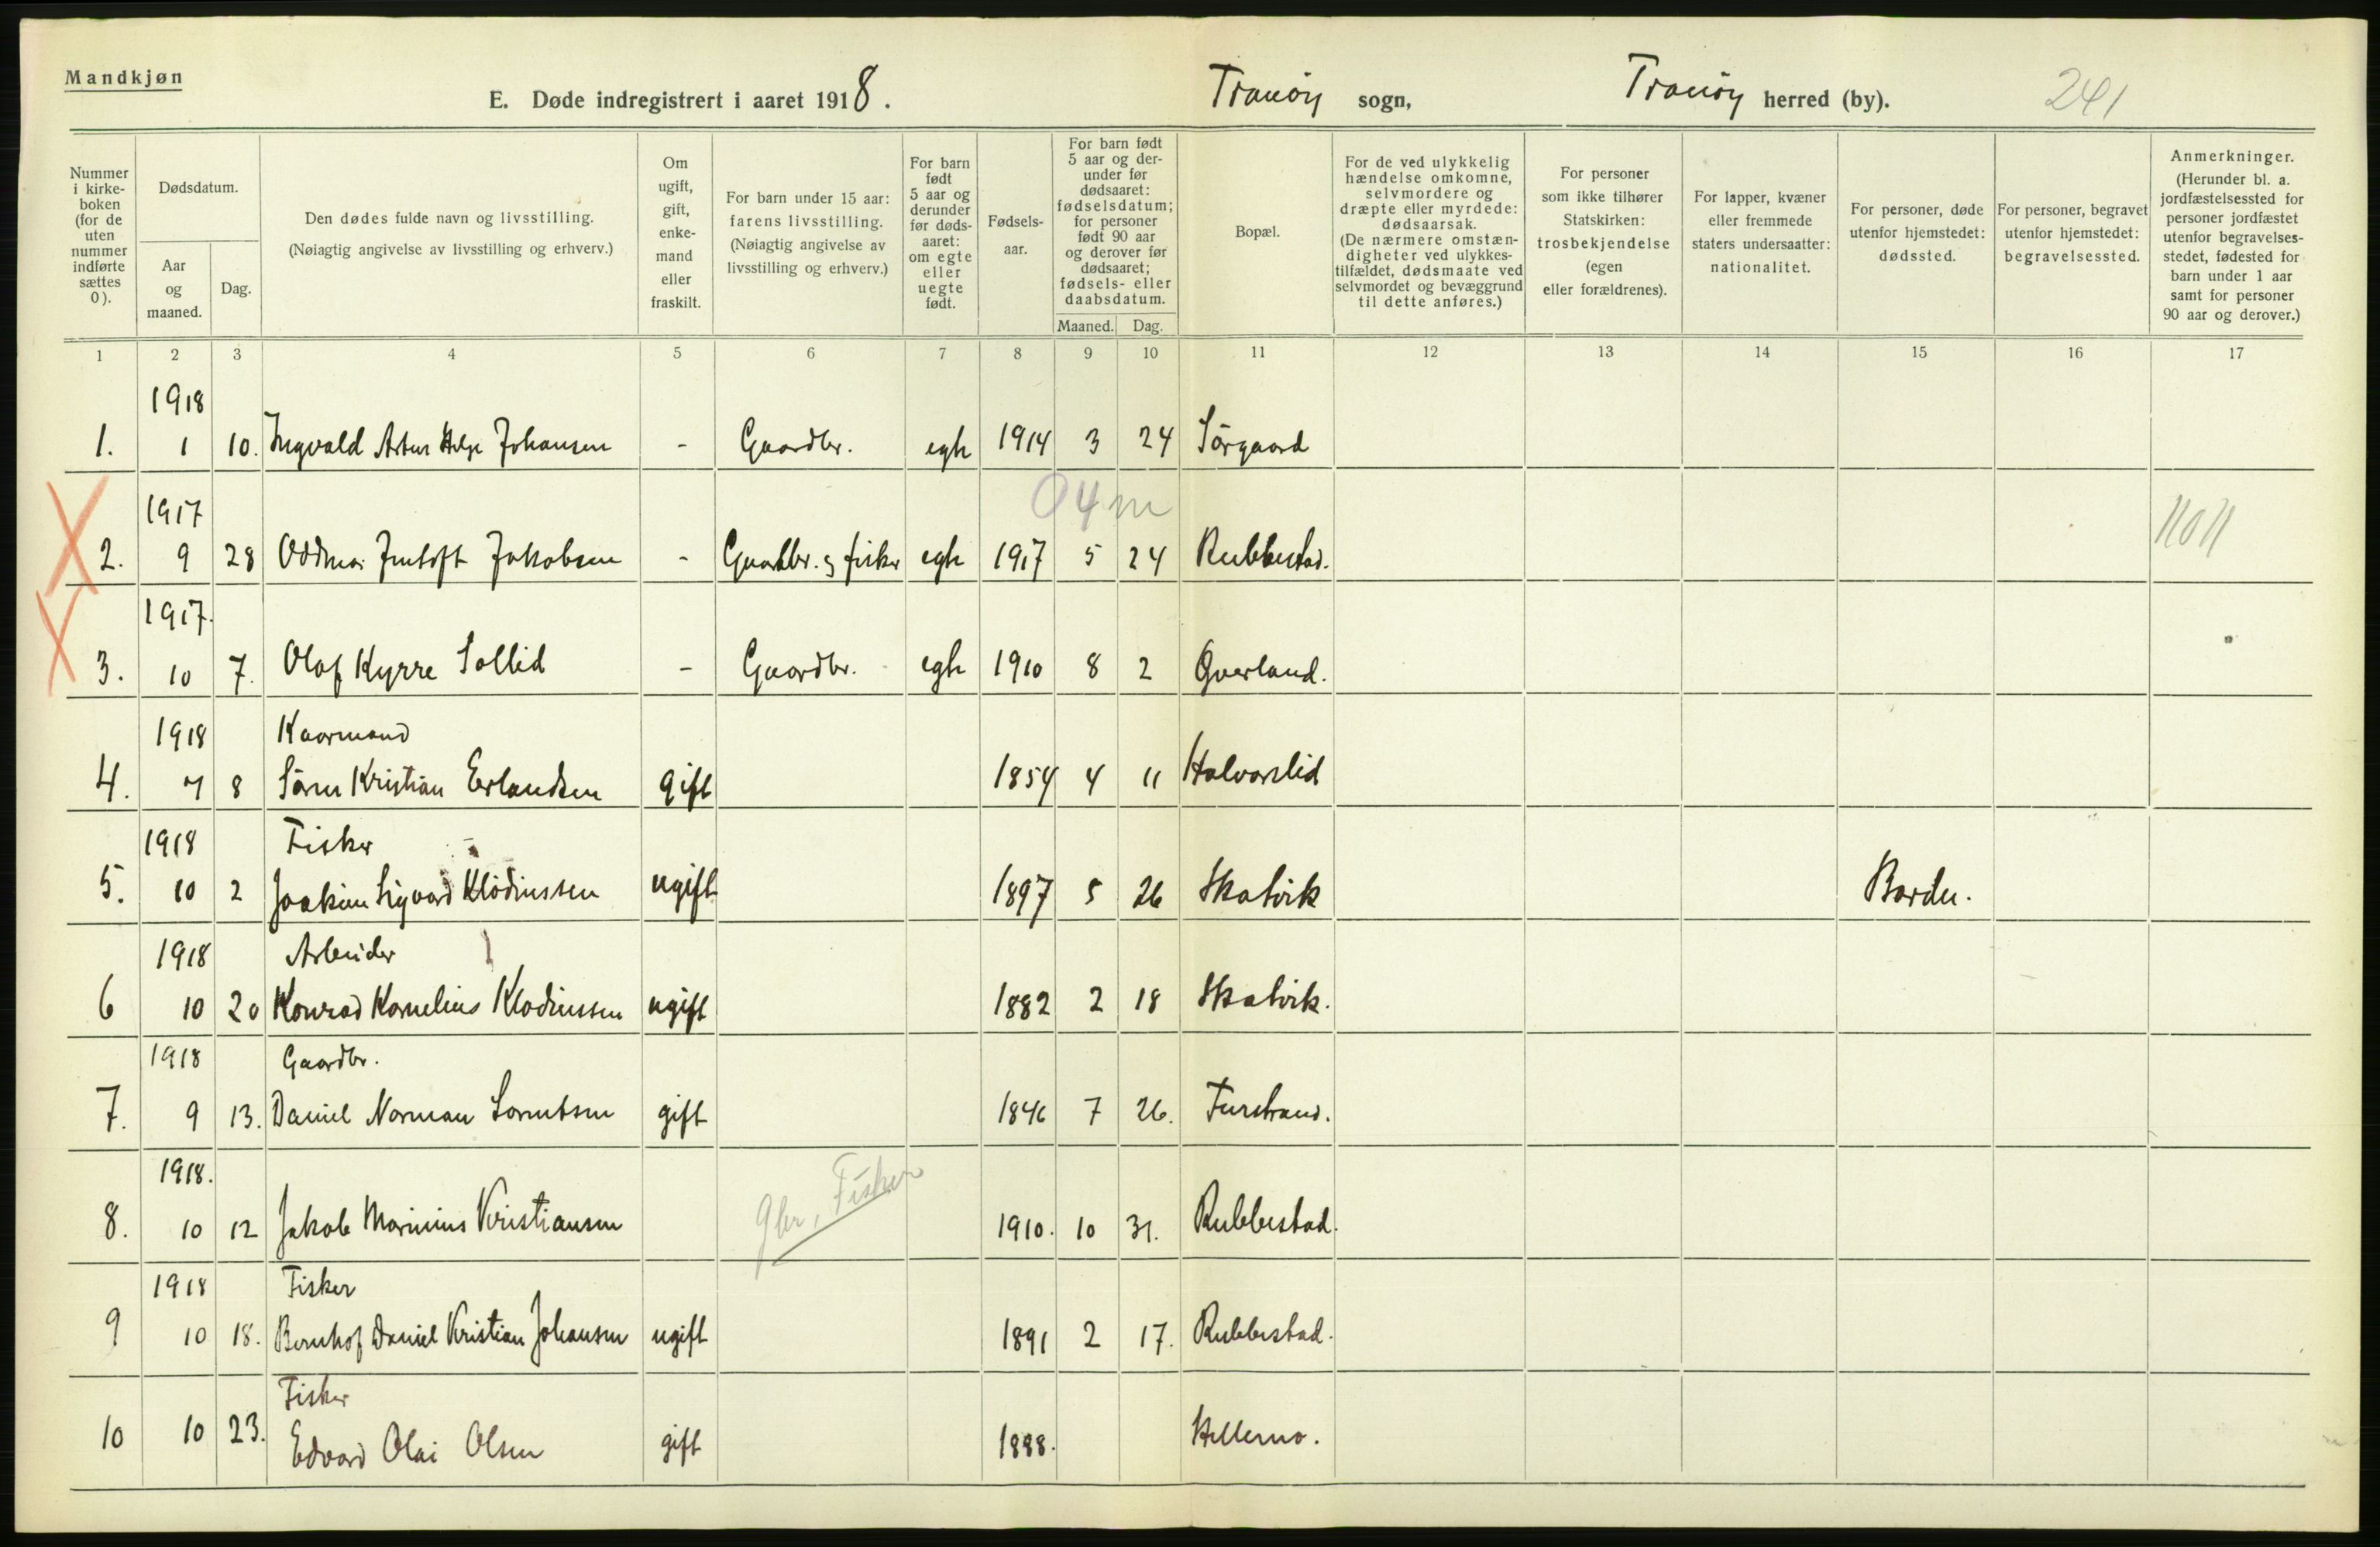 Mandkjøn
E. Døde indregistrert i aaret 1918. Tranöy sogn, Tranöy herred (by). 241
Nummer i kirke- boken (for de uten nummer indførte sættes 0).
Dødsdatum.
Aar og maaned.
Dag.
Den dødes fulde navn og livsstilling.
(Nøiagtig angivelse av livsstilling og erhverv.)
Om ugift, gift, enke- mand eller fraskilt.
For barn under 15 aar: farens livsstilling. (Nøiagtig angivelse av livsstilling og erhverv.)
For barn født 5 aar og derunder før døds- aaret: om egte eller uegte født.
Fødsels- aar.
For barn født 5 aar og der- under før dødsaaret: fødselsdatum; for personer født 90 aar og derover før dødsaaret; fødsels- eller daabsdatum.
Maaned. Dag.
Bopæl.
For de ved ulykkelig hændelse omkomne, selvmordere og dræpte eller myrdede: dødsaarsak. (De nærmere omstæn- digheter ved ulykkes- tilfældet, dødsmaate ved selvmordet og bevæggrund til dette anføres.)
For personer som ikke tilhører Statskirken: trosbekjendelse (egen eller forældrenes).
For lapper, kvæner eller fremmede staters undersaatter: nationalitet.
For personer, døde utenfor hjemstedet: dødssted.
For personer, begravet utenfor hjemstedet: begravelsessted.
Anmerkninger. (Herunder bl. a. jordfæstelsessted for personer jordfæstet utenfor begravelses- stedet, fødested for barn under 1 aar samt for personer 90 aar og derover.)
1 2 3 4 5 6 7 8 9 10 11 12 13 14 15 16 17
1918
1. 1 10. Ingvald Artur Helge Johansen - Gaardbr. egte 1914 3 24 Sörgaard
1917 04 m
2. 9 28 Jakobsen - Gaardbr. og fisker egte 1917 5 24 Rubbestad.
1917.
3. 10 7. Olaf Kyrre Sollid - Gaardbr. egte 1910 8 2 Overland.
1918 Kaarmand
4. 7 8 Sören Kristian Erlandsen gift 1854 4 11 Halvarslid
1918 Fisker
5. 10 2 Joakim Sigvard Klodiussen ugift 1897 5 26 Skatvik Bardu.
1918 Arbeider
6 10 20 Konrad Kornelius Klodiussen ugift 1882 2 18 Skatvik.
1918 Gaardbr.
7. 9 13. Daniel Norman Lorentsen gift 1846 7 26. Furstrand.
1918. gbr, Fisker
8. 10 12 Jakob Marinius Kristiansen 1910. 10 31. Rubbestad.
1918 Fisker
9 10 18. Bernhof Daniel Kristian Johansen ugift 1891 2 17. Rubbestad.
Fisker
10 10 23. Edvard Olai Olsen gift 1888. Hellemo.